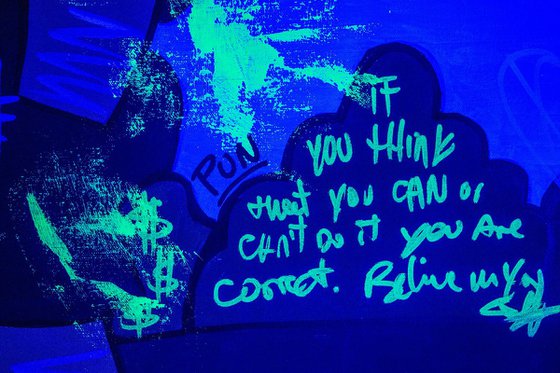 PUN
IF
YOU THINK
that YOU CAN or
CAN'T DO IT YOU ARE
correct. Belive in
$
$
$